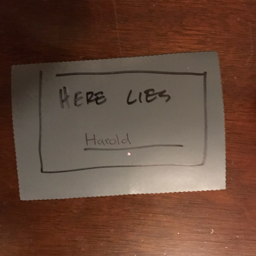 HERE LIES
Harold